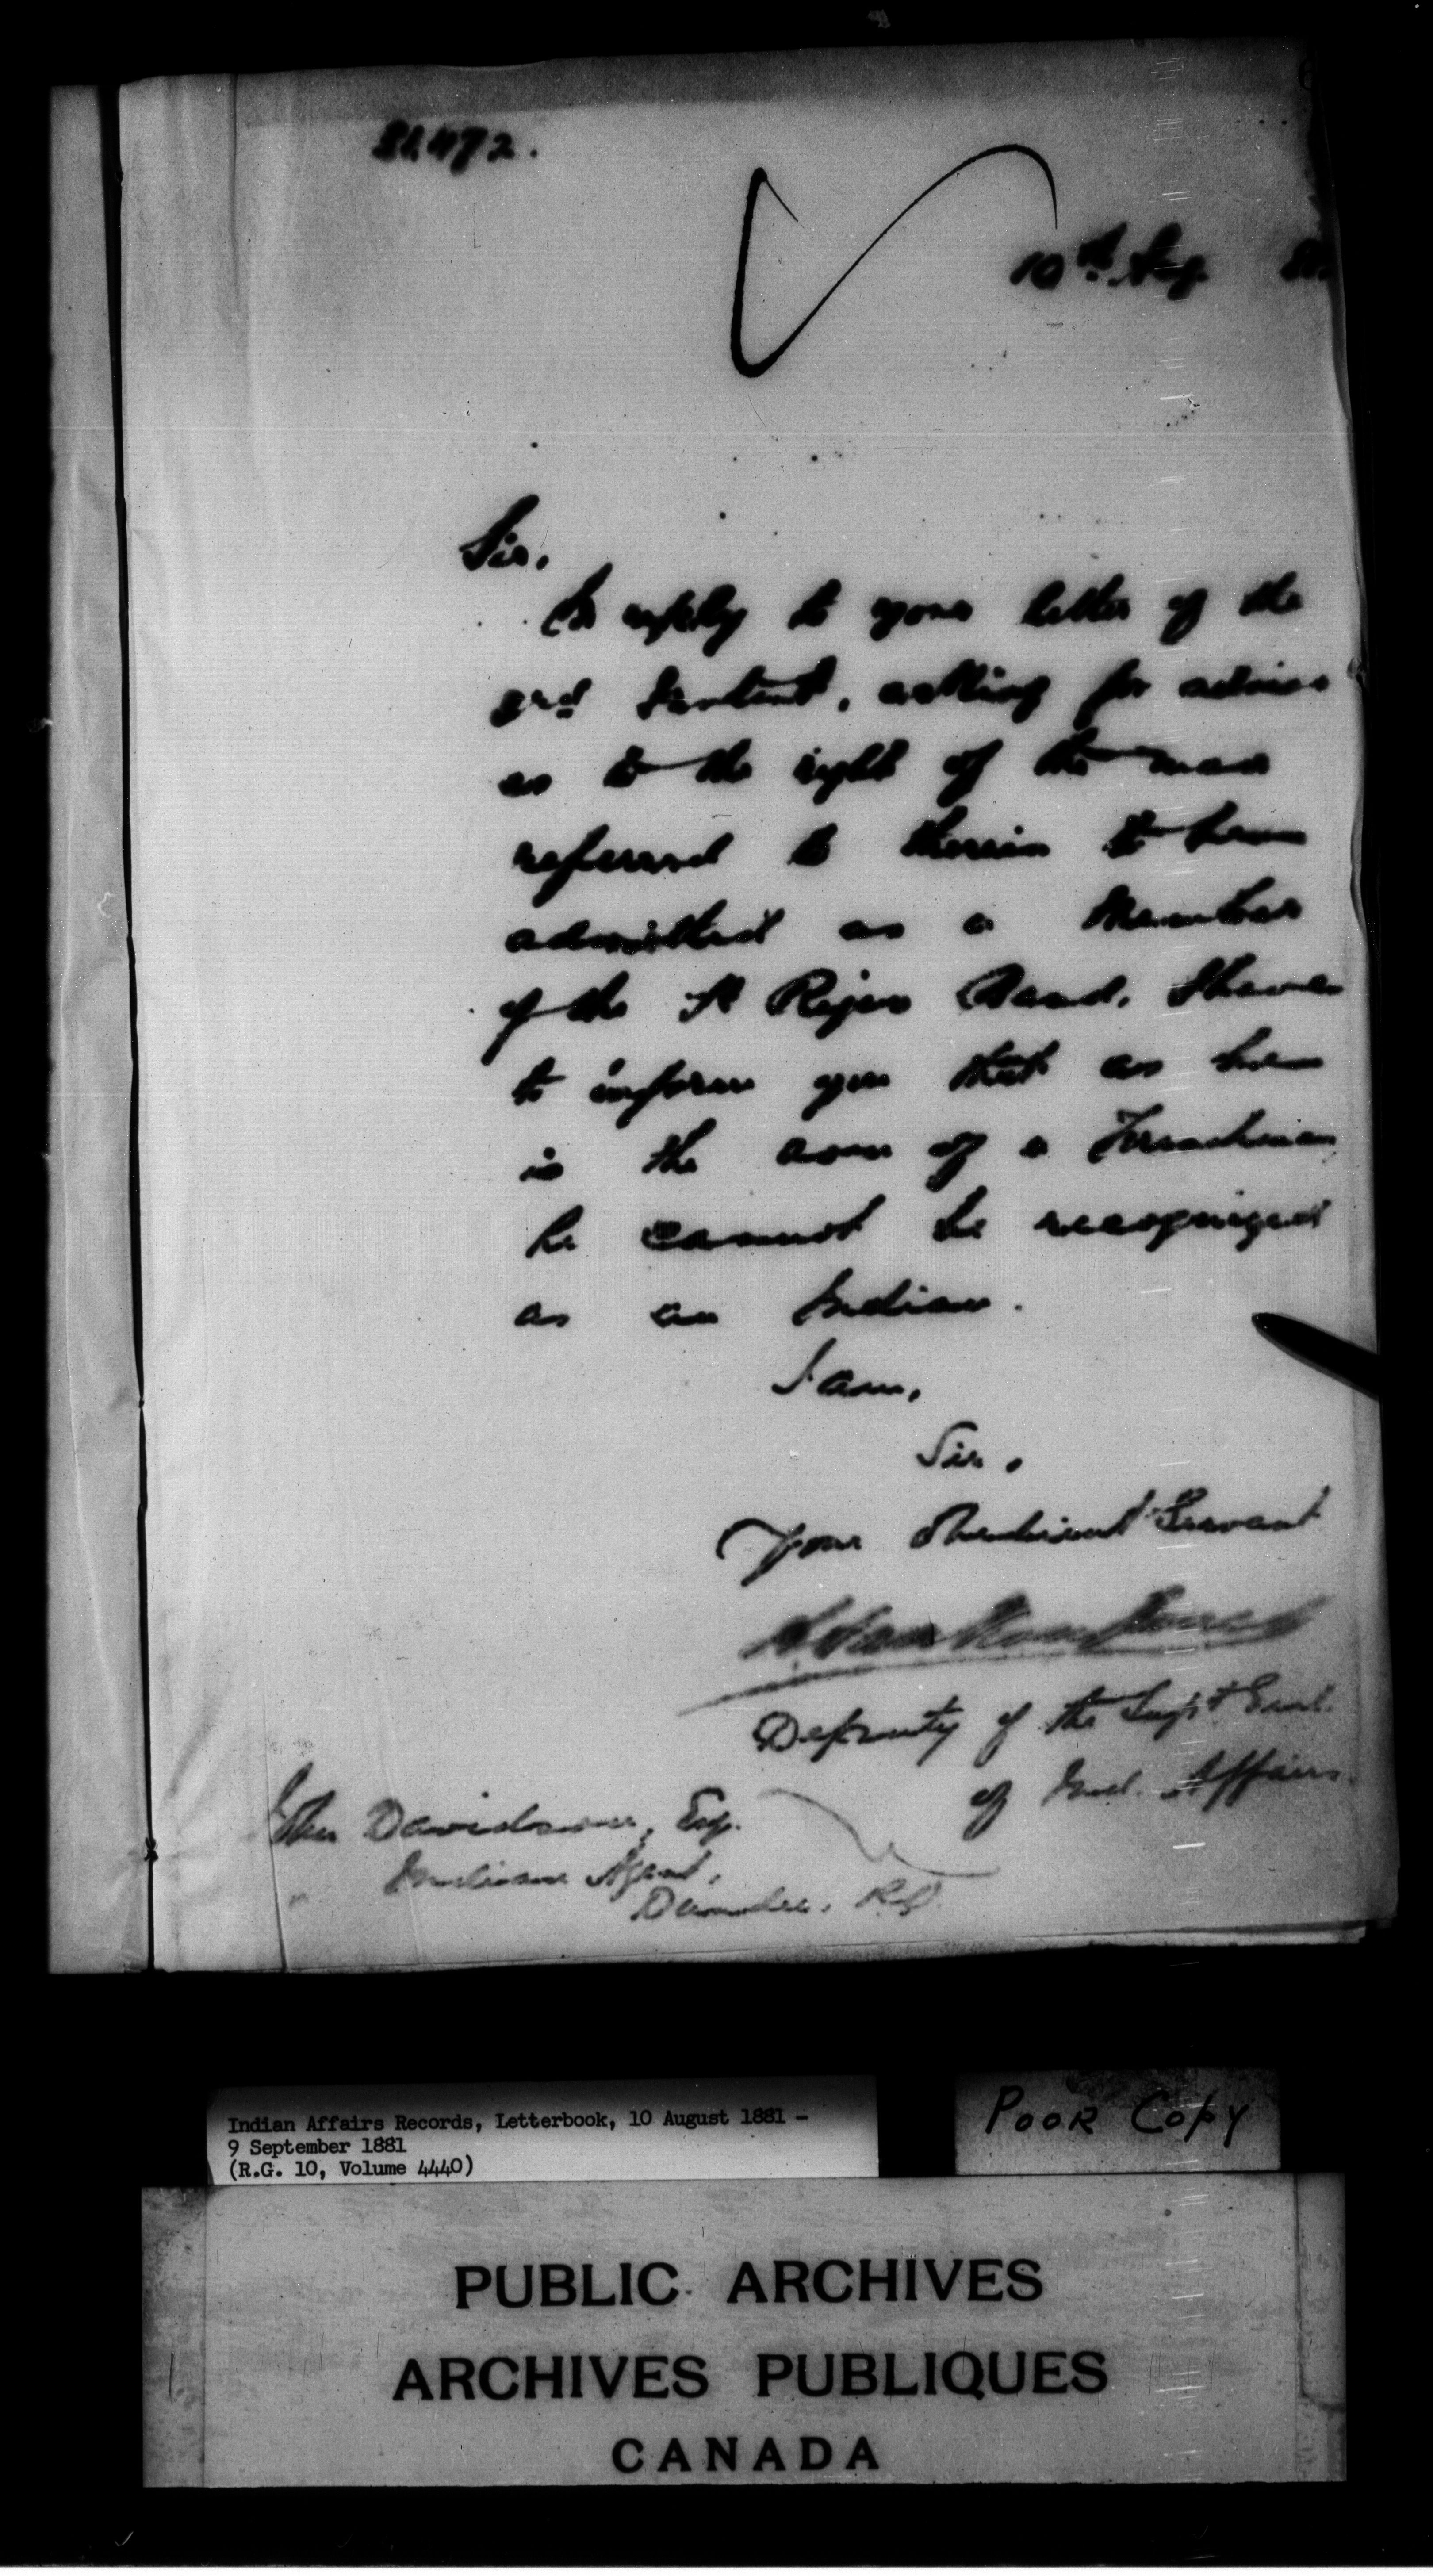 10th Aug. 81
Sir,
In reply to your letter of the
3rd Instant, asking for advice
as to the right of the man
referred to therein to be
admitted as a Member
of the St Regis Band, I have
to inform you that as he
is the son of a Frenchman
he cannot be recognized
as an Indian.
I am,
Sir,
Your Obedient Servant
L. VanKoughnet
Deputy of the Supt Genl.
of Ind. Affairs.
John Davidson, Esq.
Indian Agent,
Dundee, P.Q.
Indian Affairs Records, Letterbook, 10 August 1881 -
9 September 1881
(R.G. 10, Volume 4440)
POOR COPY
PUBLIC ARCHIVES
ARCHIVES PUBLIQUES
CANADA